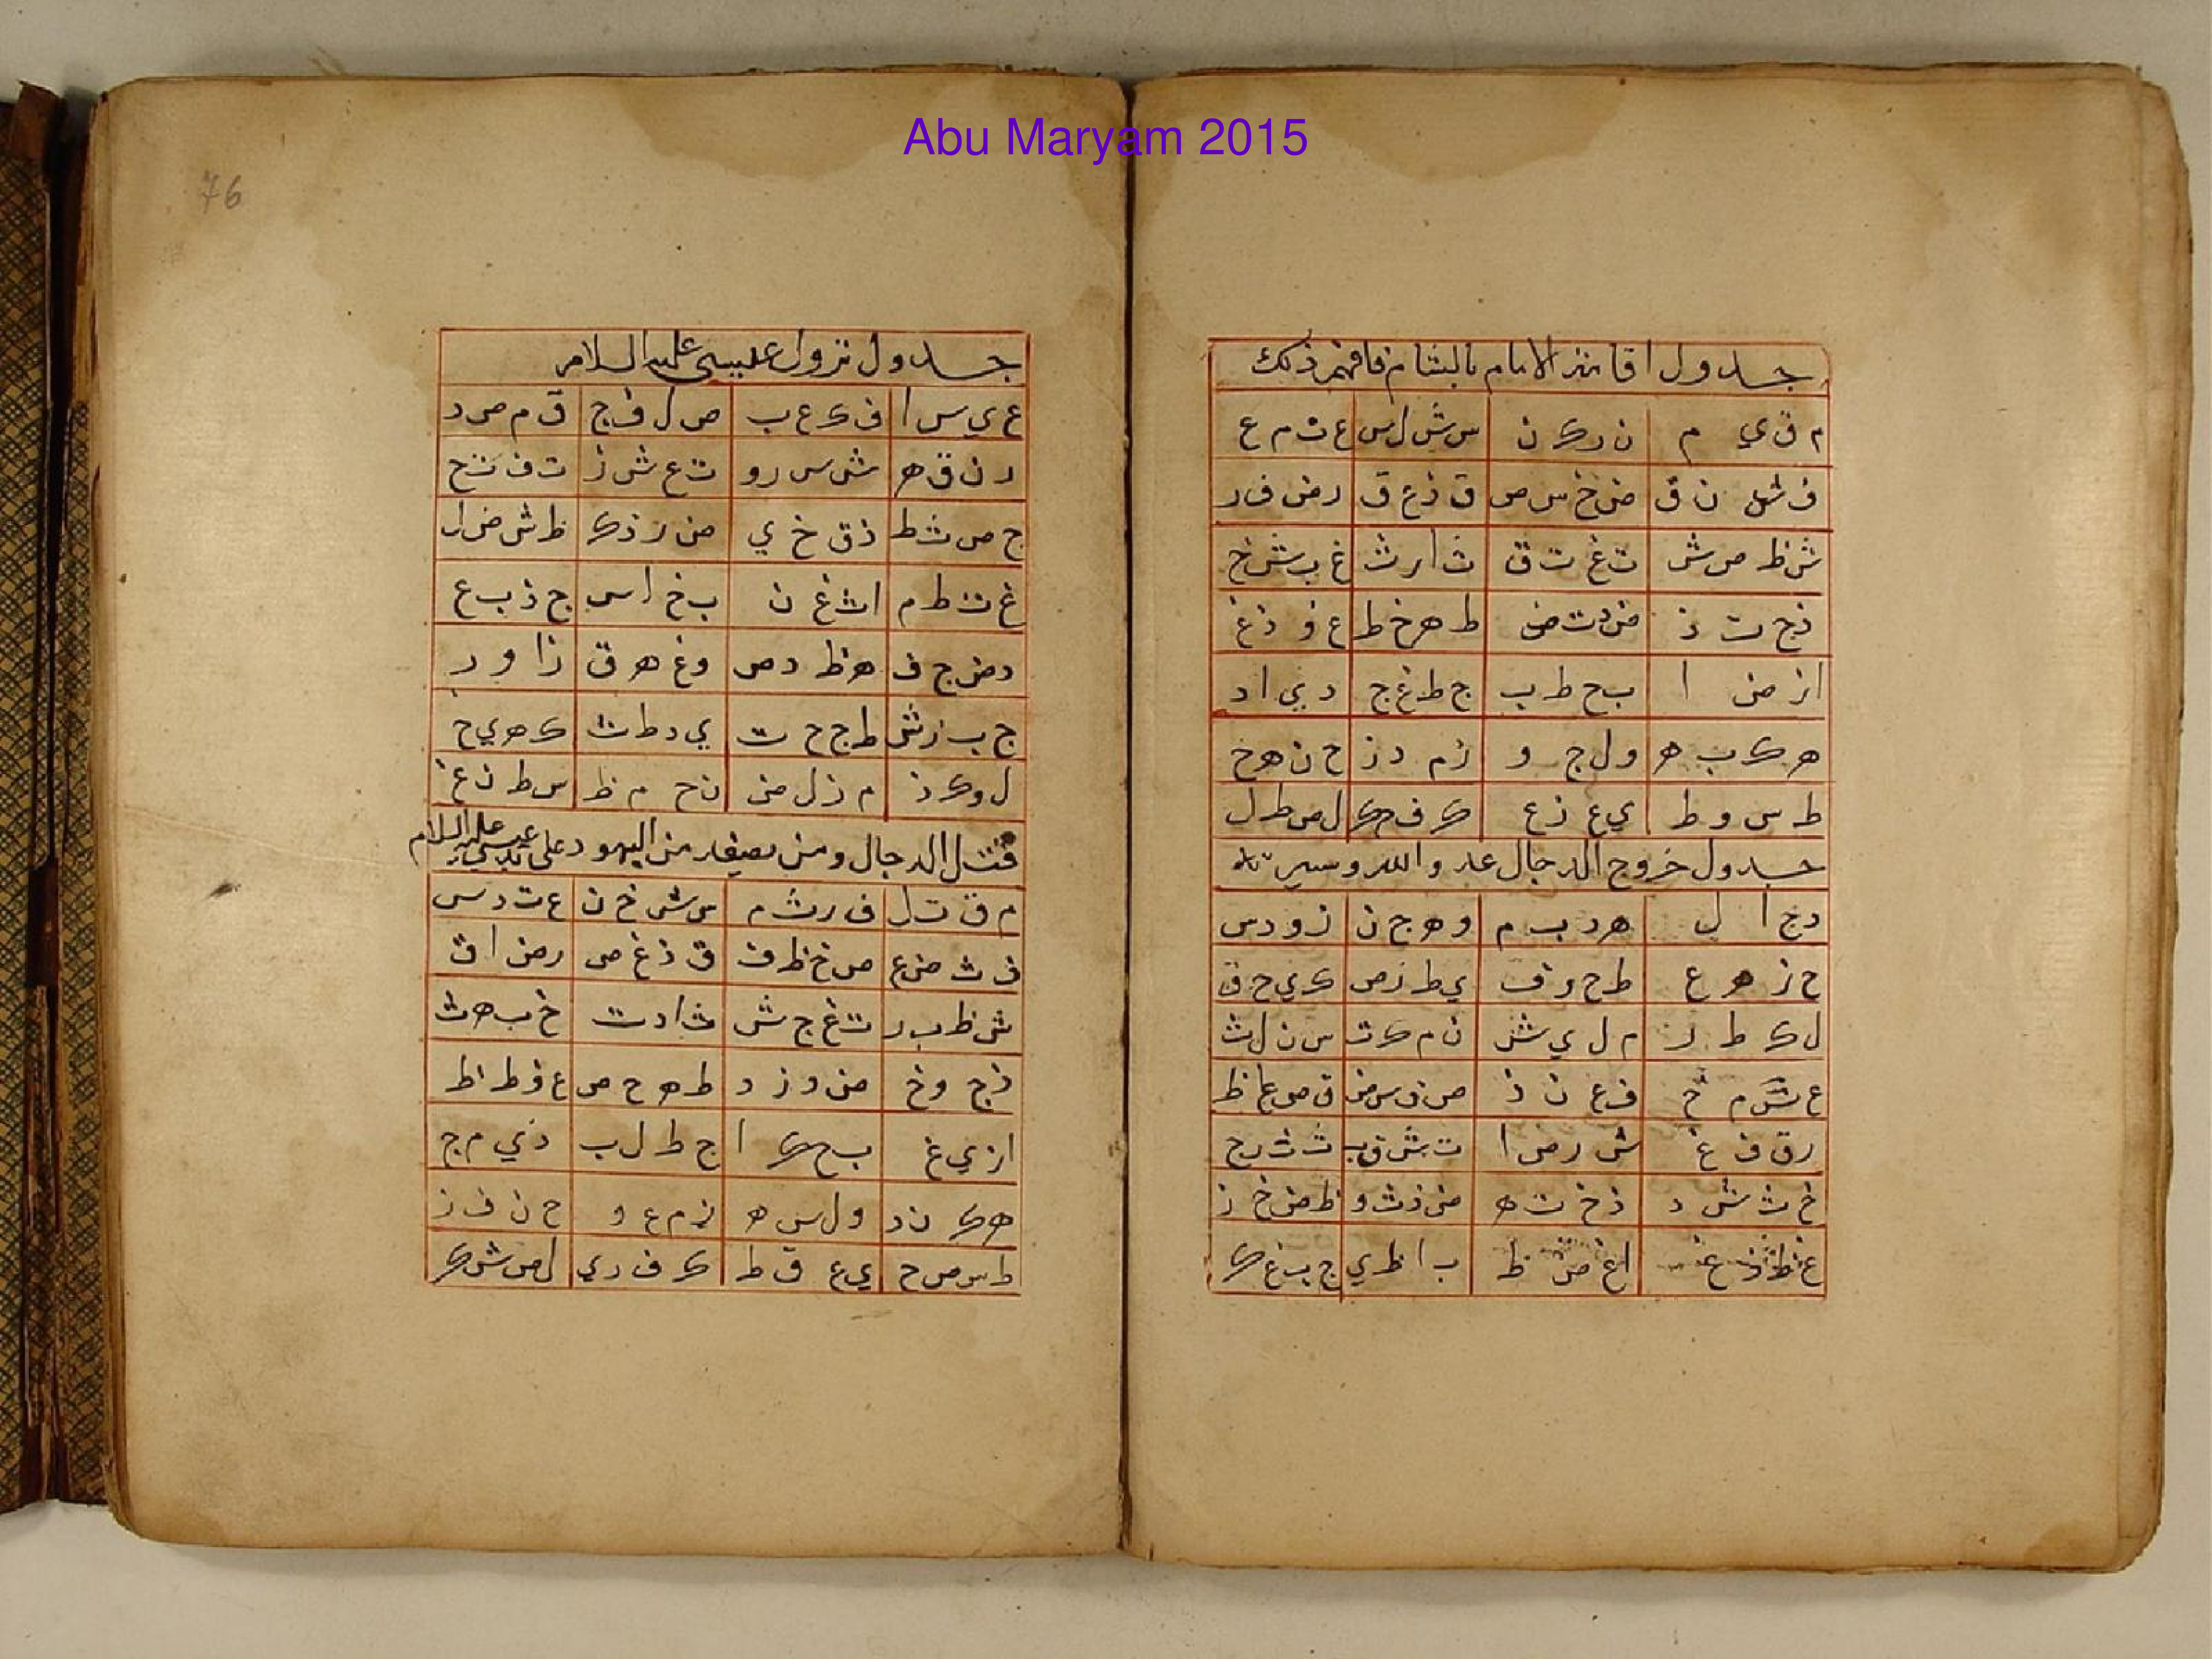 Abu Maryam 2015
جدول اقامة الامام بالشام فافهم ذلك
م ق ي م ن ر ك ن س ش ل س ع ت م ع
ف ش ن ق ض خ س ص ق ذ ع ق ر ض ف ر
ش ظ ص ش ت غ ت ق ث ا ر ث غ ب ش خ
ذ ج ت ذ ض د ت ض ط ه خ ظ ع و ذ غ
ا ز ض ا ب ح ط ب ج ط غ ج د ي ا د
ه ك ب ه و ل ج و ز م د ز ح ن ه ح
ط س و ط ي ع ز ع ك ف ك ل ص ط ل
جدول خروج الدجال عدو الله وسيرته
د ج ا ل ه د ب م و ه ج ن ز و د س
ح ز ه ع ط ح و ف ي ط ز ص ك ي ح ق
ل ك ط ر م ل ي ش ن م ك ت س ن ل ث
ع ش م خ ف ع ن ذ ص ف س ض ق ص ع ظ
ر ق ف غ ش ر ص ا ت ش ق ب ث ث ر ج
خ ث ش د ذ خ ت ه ض ذ ث و ظ ض خ ز
غ ظ ذ ع ا غ ض ظ ب ا ظ ي ج ب غ ك
76
جدول نزول عيسى عليه السلام
ع ي س ا ف ك ع ب ص ل ف ج ق م ص د
ر ن ق ه ش س ر و ت ع ش ز ت ف ت ح
ج ص ث ط ذ ق خ ي ض ر ذ ك ظ ش ض ل
غ ت ظ م ا ث غ ن ب خ ا س ج ذ ب ع
د ض ج ف ه ظ د ص و غ ه ق ز ا و ر
ج ب ز ش ط ج ح ت ي د ط ث ك ه ي ح
ل و ك ذ م ز ل ض ن ح م ظ س ط ن غ
قتل الدجال ومن يصيفه من اليهود على يد عيسى عليه السلام
م ق ت ل ف ر ث م س ش خ ن ع ت د س
ف ث ض ع ص خ ظ ف ق ذ غ ص ر ض ا ق
ش ظ ب ر ت غ ج ش ث ا د ت خ ب ه ث
ذ ج و خ ض د ز د ط ه ح ص ع و ط ظ
ا ز ي غ ب ح ك ا ج ط ل ب د ي م ج
ه ك ن د و ل س ه ز م ع و ح ن ف ز
ط س ص ح ي ع ق ط ك ف ر ي ل ص ش ك